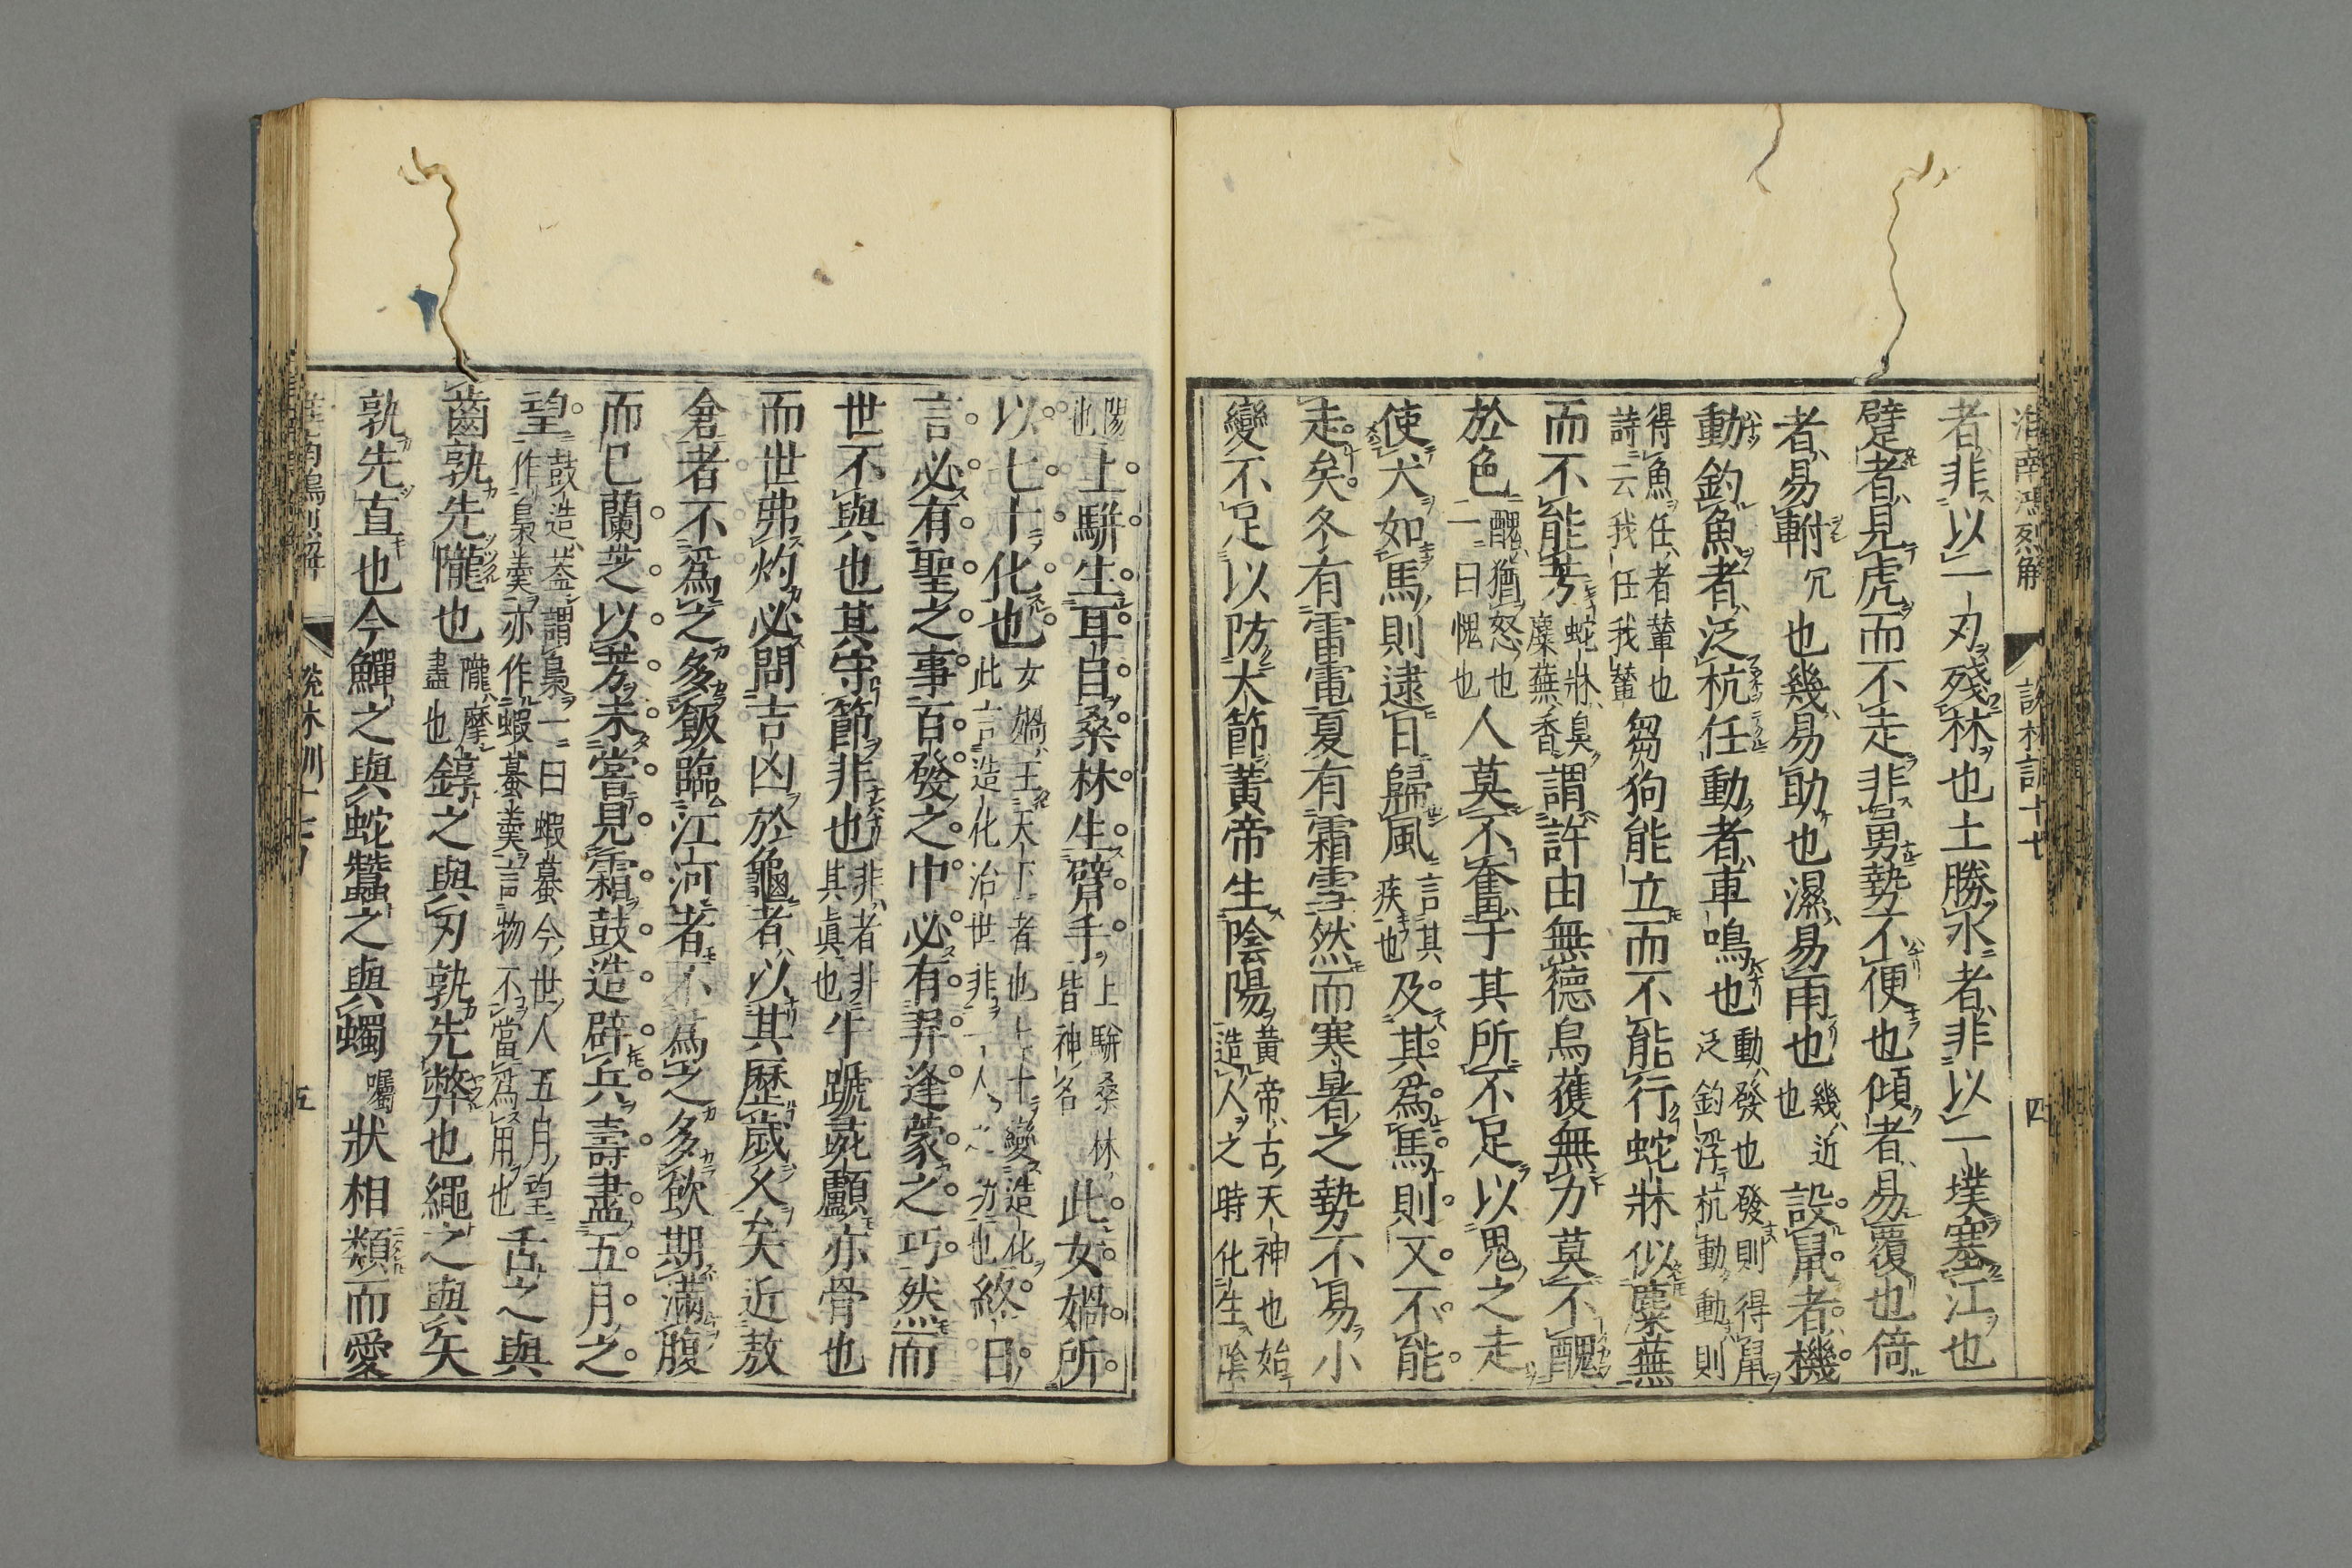 淮南鴻烈解 說林訓十七 四
者非以一刃殘林也土勝水者非以一墣塞江也
躄者見虎而不走非勇勢不便也傾者易覆也倚
者易軵宂也幾易助也濕易雨也幾近也設鼠者機
動釣魚者泛杭任動者車鳴也動發也發則得鼠泛釣浮杭動動則
得魚任者輦也詩云我任我輦芻狗能立而不能行蛇牀似麋蕪
而不能芳蛇牀臭麋蕪香謂許由無德烏獲無力莫不醜
於色醜猶怒也一曰愧也人莫不奮于其所不足以兎之走
使犬如馬則逮日歸風言其疾也及其爲馬則又不能
走矣冬有雷電夏有霜雪然而寒暑之勢不易小
變不足以防大節黃帝生陰陽黃帝古天神也始造人之時化生陰
陽也上駢生耳目桑林生臂手上駢桑林皆神名此女媧所
以七十化也女媧王天下者也七十變造化此言造化治世非一人之功也終日
言必有聖之事百發之中必有羿逢蒙之巧然而
世不與也其守節非也非者非其眞也牛蹏彘顱亦骨也
而世弗灼必問吉凶於龜者以其歷歲久矣近敖
倉者不爲之多飯臨江河者不爲之多飲期滿腹
而已蘭芝以芳未嘗見霜鼓造辟兵壽盡五月之
望鼓造葢謂梟一曰蝦蟇今世人五月望作梟羹亦作蝦蟇羹言物不當爲用也舌之與
齒孰先隴也隴摩盡也錞之與刃孰先弊也繩之與矢
孰先直也今鱓之與蛇蠶之與蠋狀相類而愛
說林訓十七 五